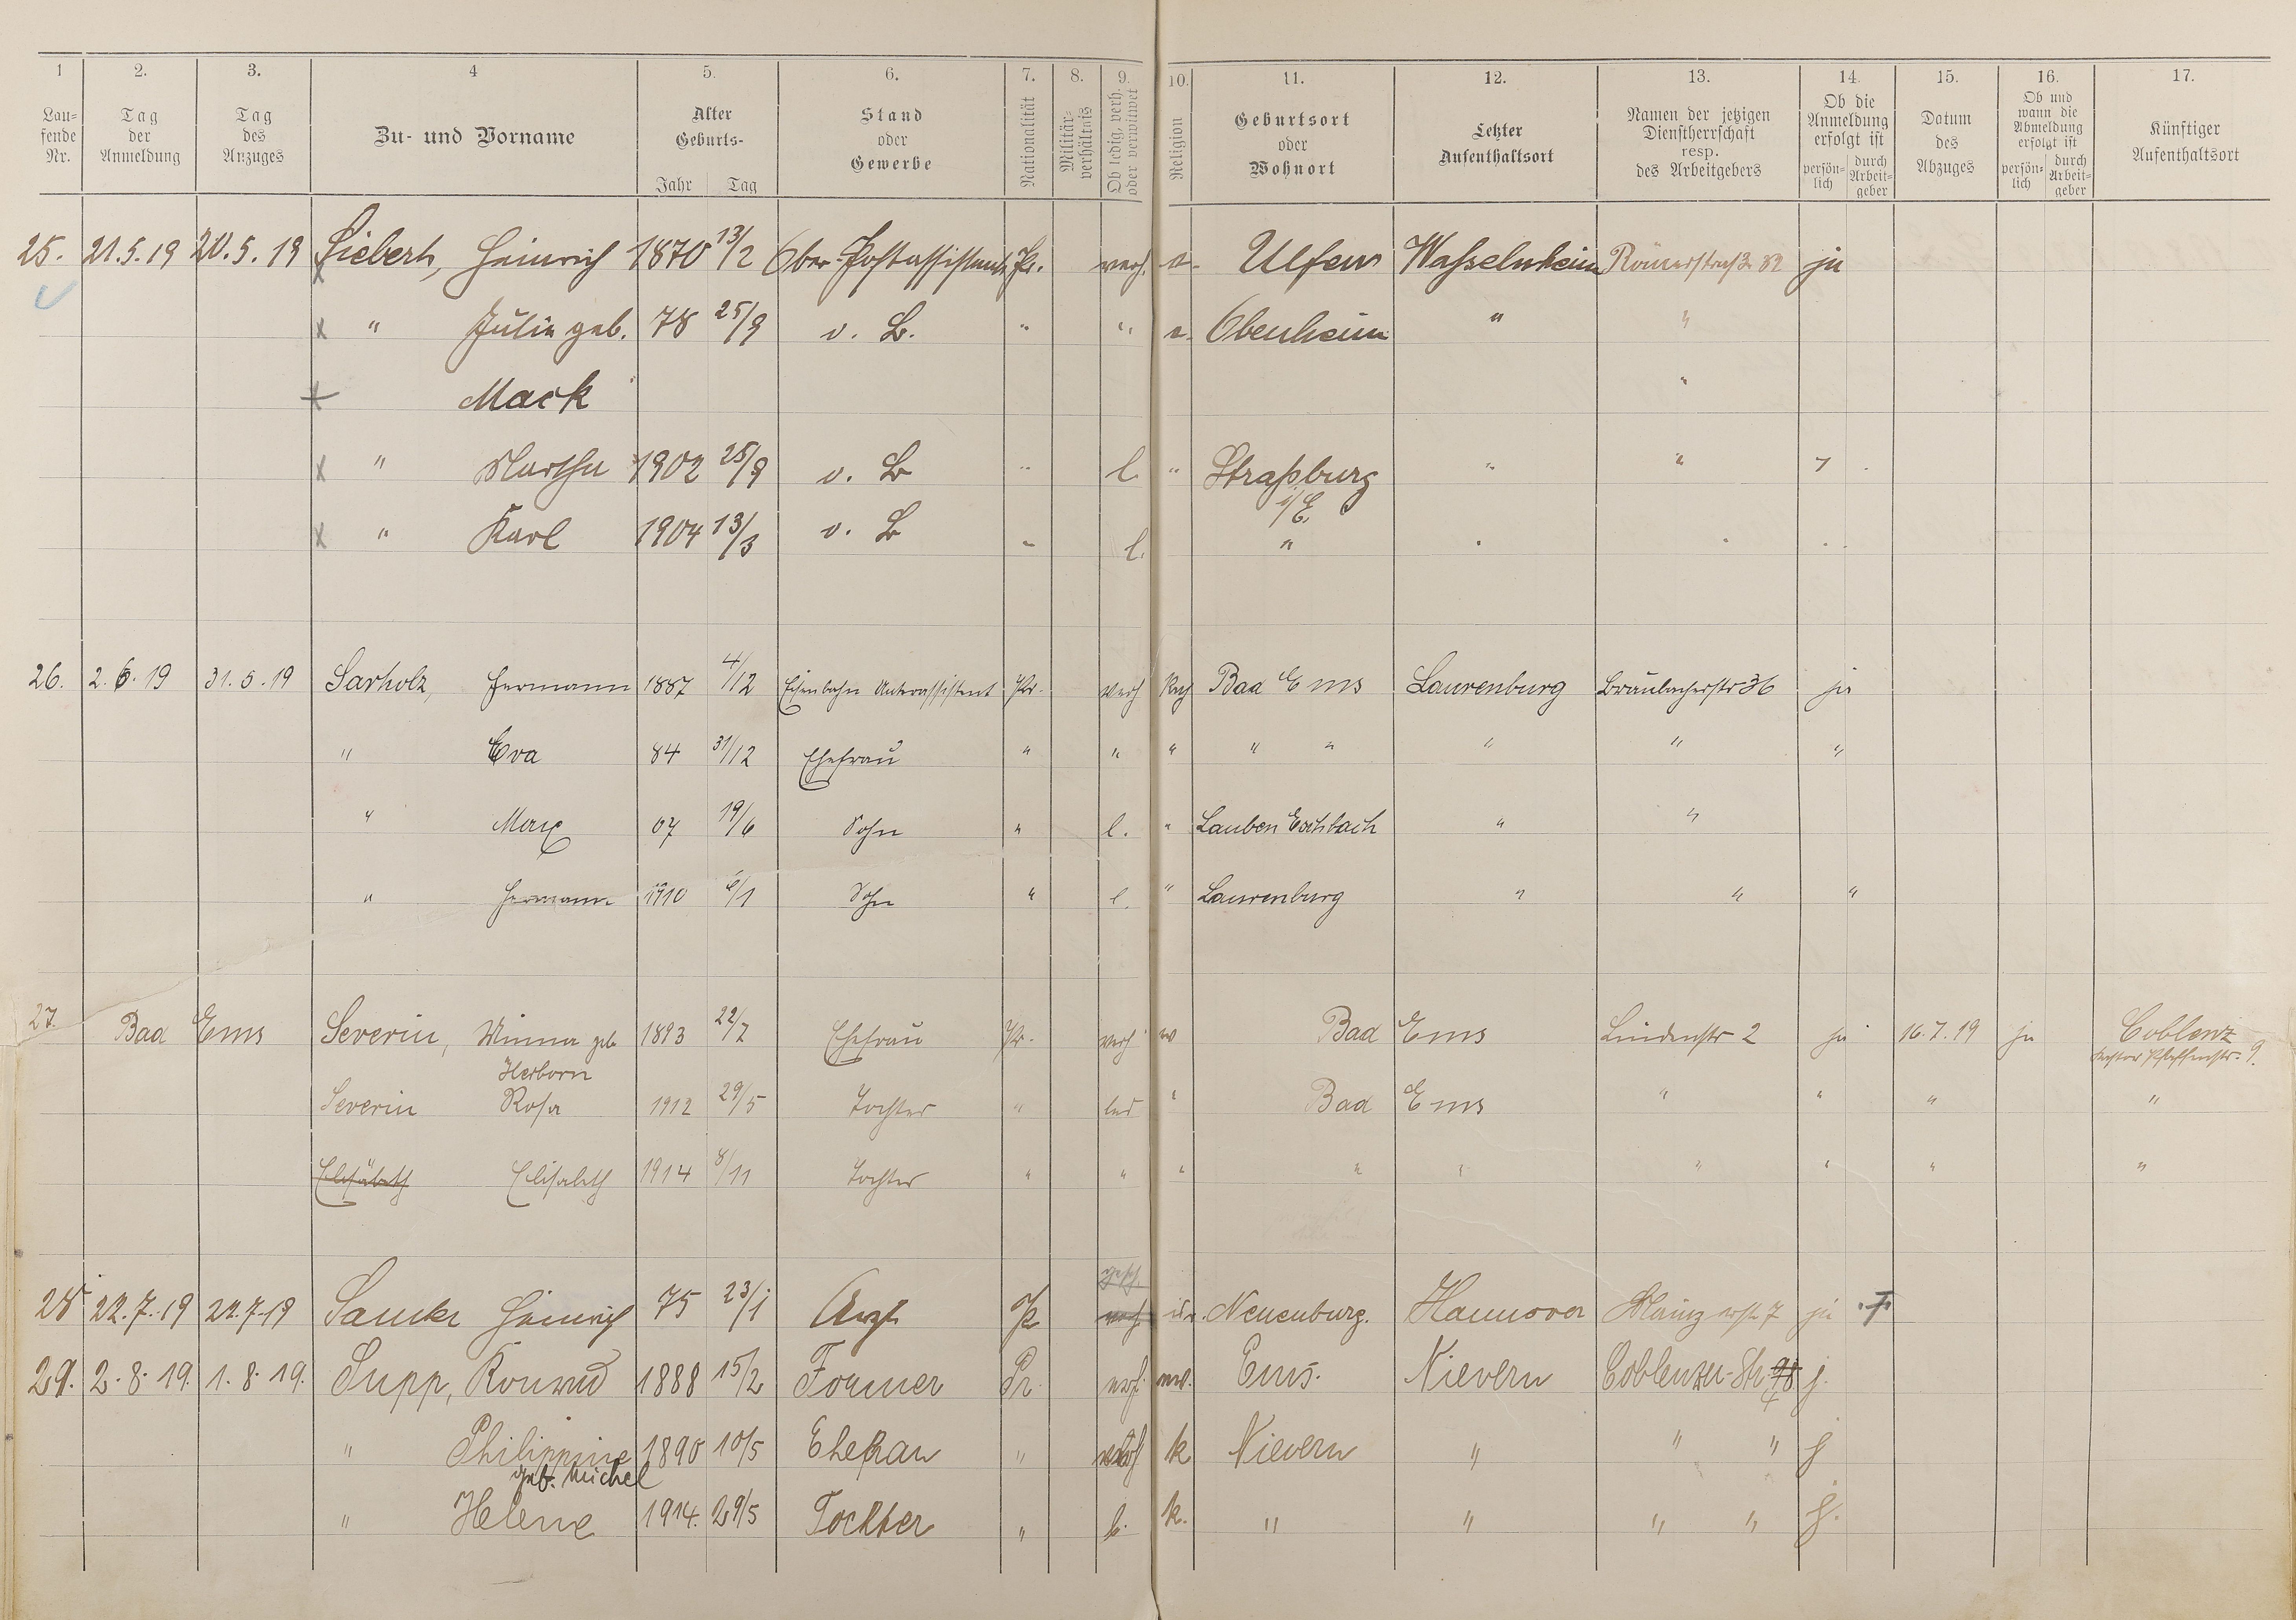 1 2. 3. 4 5. 6. 7. 8. 9. 10. 11. 12. 13. 14. 15. 16. 17.
Lau-
fende
Nr.
Tag
der
Anmeldung
Tag
des
Anzuges
Zu- und Vorname
Alter
Geburts-
Jahr Tag
Stand
oder
Gewerbe
Nationalität
Militär-
verhältnis
Ob ledig, verh.
oder verwitwet
Religion
Geburtsort
oder
Wohnort
Letzter
Aufenthaltsort
Namen der jetzigen
Dienstherrschaft
resp.
des Arbeitgebers
Ob die
Anmeldung
erfolgt ist
persön-
lich
durch
Arbeit-
geber
Datum
des
Abzuges
Ob und
wann die
Abmeldung
erfolgt ist
persön-
lich
durch
Arbeit-
geber
Künftiger
Aufenthaltsort
25. 21.5.19 20.5.19 Siebert, Heinrich 1870 13/2 Ober-Postassistent Pr. verh. e. Ulfen Wasselnheim Römerstraße 82 ja
" Julie geb. 78 25/9 o. B. " " e. Obenheim " "
Mack "
" Martha 1902 25/9 o. B " l. " Straßburg " "
i/E.
" Karl 1904 13/3 o. B " l. " " "
26. 2.6.19 31.5.19 Sarholz, Hermann 1887 4/12 Eisenbahn Unterassistent Pr. verh Bad Ems Laurenburg Braubacherstr 36 ja
" Eva 84 31/12 Ehefrau " " " " " " " "
" Max 07 19/6 Sohn " l. " Lauben Eschbach " "
" Hermann 1910 6/1 Sohn " l. " Laurenburg " " "
27. Bad Ems Severin, Minna geb 1893 22/7 Ehefrau Pr. verh Bad Ems Lindenstr 2 ja 16.7.19 ja Coblenz
Herborn
9.
Severin Rosa 1912 29/5 Tochter " led " Bad Ems " " " "
Elisabeth Elisabeth 1914 8/11 Tochter " " " " " " " " "
28 22.7.19 22.7.19 Sander Heinrich 75 23/1 Arzt Pr gesch. verh. Neuenburg. Hannover Mainzerstr 7 ja
29. 2.8.19. 1.8.19. Supp, Konrad 1888 15/2 Former Pr. verh. ev. Ems. Nievern Coblenzer-Str. 48 j.
" Philippine 1890 10/5 Ehefrau " verh k Nievern " " " j
geb. Michel
" Helene 1914. 29/5 Tochter " l. k. " " " " j.